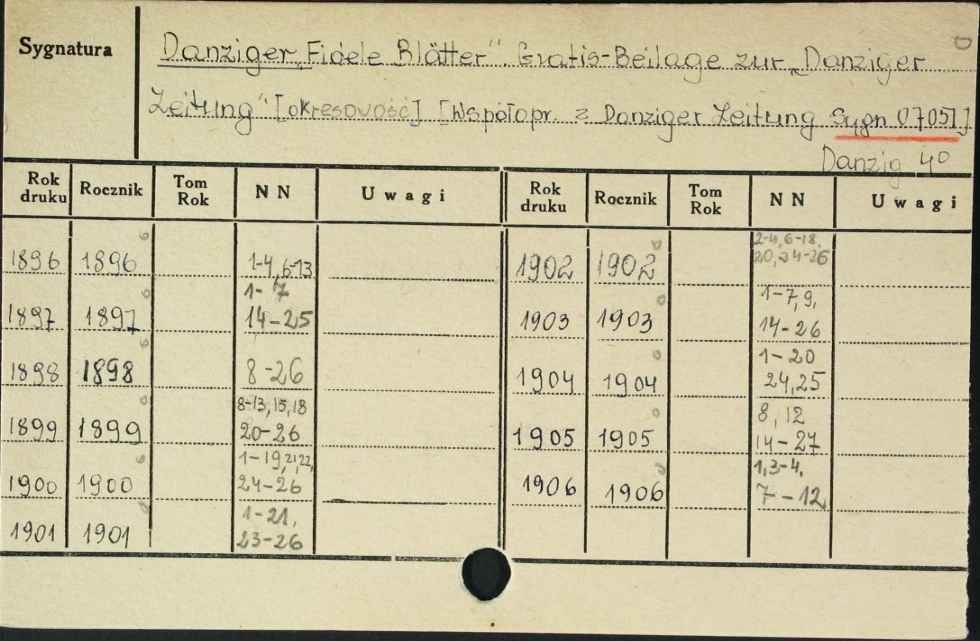 Sygnatura
Danziger „Fidele Blätter". Gratis-Beilage zur „Danziger
Zeitung" [okresowość] [Współopr. z Danziger Zeitung Sygn 07051]
Danzig 4º
Rok druku Rocznik Tom Rok NN Uwagi Rok druku Rocznik Tom Rok NN Uwagi
1896 1896 1-4, 6-13 1902 1902 2-4, 6-18, 20, 24-26
1897 1897 1-7 14-25 1903 1903 1-7, 9, 14-26
1898 1898 8-26 1904 1904 1-20 24, 25
1899 1899 8-13, 15, 18 20-26 1905 1905 8, 12 14-27
1900 1900 1-19, 21, 22, 24-26 1906 1906 1, 3-4, 7-12
1901 1901 1-21, 23-26